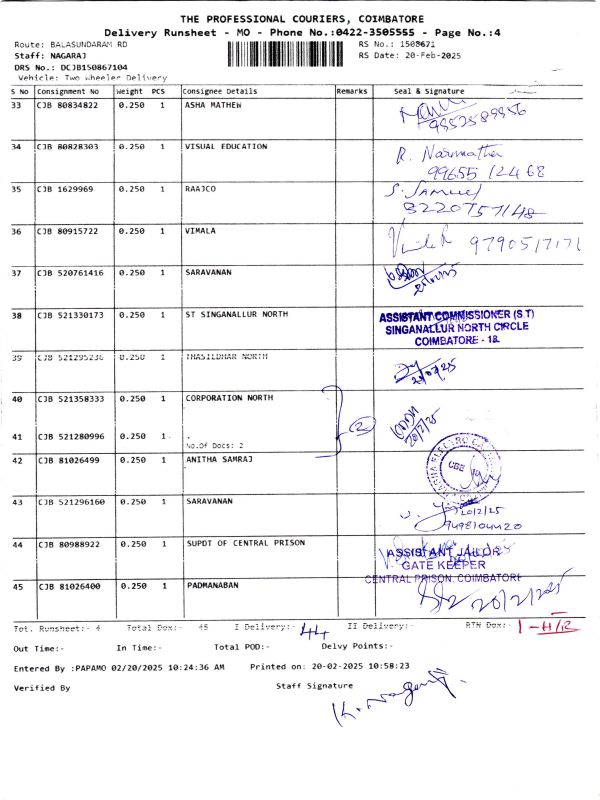 THE PROFESSIONAL COURIERS, COIMBATORE
Delivery Runsheet - MO - Phone No.:0422-3505555 - Page No.:4
Route: BALASUNDARAM RD RS No.: 1508671
Staff: NAGARAJ RS Date: 20-Feb-2025
DRS No.: DCJB150867104
Vehicle: Two Wheeler Delivery
S No Consignment No Weight PCS Consignee Details Remarks Seal & Signature
33 CJB 80834822 0.250 1 ASHA MATHEW
9852589956
34 CJB 80828303 0.250 1 VISUAL EDUCATION R. Narmatha
99655 12468
35 CJB 1629969 0.250 1 RAAJCO S. Samuel
8220757148
36 CJB 80915722 0.250 1 VIMALA 9790517171
37 CJB 520761416 0.250 1 SARAVANAN
38 CJB 521330173 0.250 1 ST SINGANALLUR NORTH ASSISTANT COMMISSIONER (S.T)
SINGANALLUR NORTH CIRCLE
COIMBATORE - 18.
39 CJB 521295236 0.250 1 THASILDHAR NORTH
40 CJB 521358333 0.250 1 CORPORATION NORTH
(2)
20/2/25
41 CJB 521280996 1 .
No.Of Docs: 2
42 CJB 81026499 0.250 1 ANITHA SAMRAJ
CBE
43 CJB 521296160 0.250 1 SARAVANAN
20/2/25
9498104420
44 CJB 80988922 0.250 1 SUPDT OF CENTRAL PRISON ASSISTANT JAILOR
GATE KEEPER
CENTRAL PRISON, COIMBATORE
45 CJB 81026400 0.250 1 PADMANABAN 20/2/25
Tot. Runsheet:- 4 Total Dox:- 45 I Delivery:- 44 II Delivery:- RTN Dox:- 1 - H/R
Out Time:- In Time:- Total POD:- Delvy Points:-
Entered By :PAPAMO 02/20/2025 10:24:36 AM Printed on: 20-02-2025 10:58:23
Verified By Staff Signature
K. Nagaraj